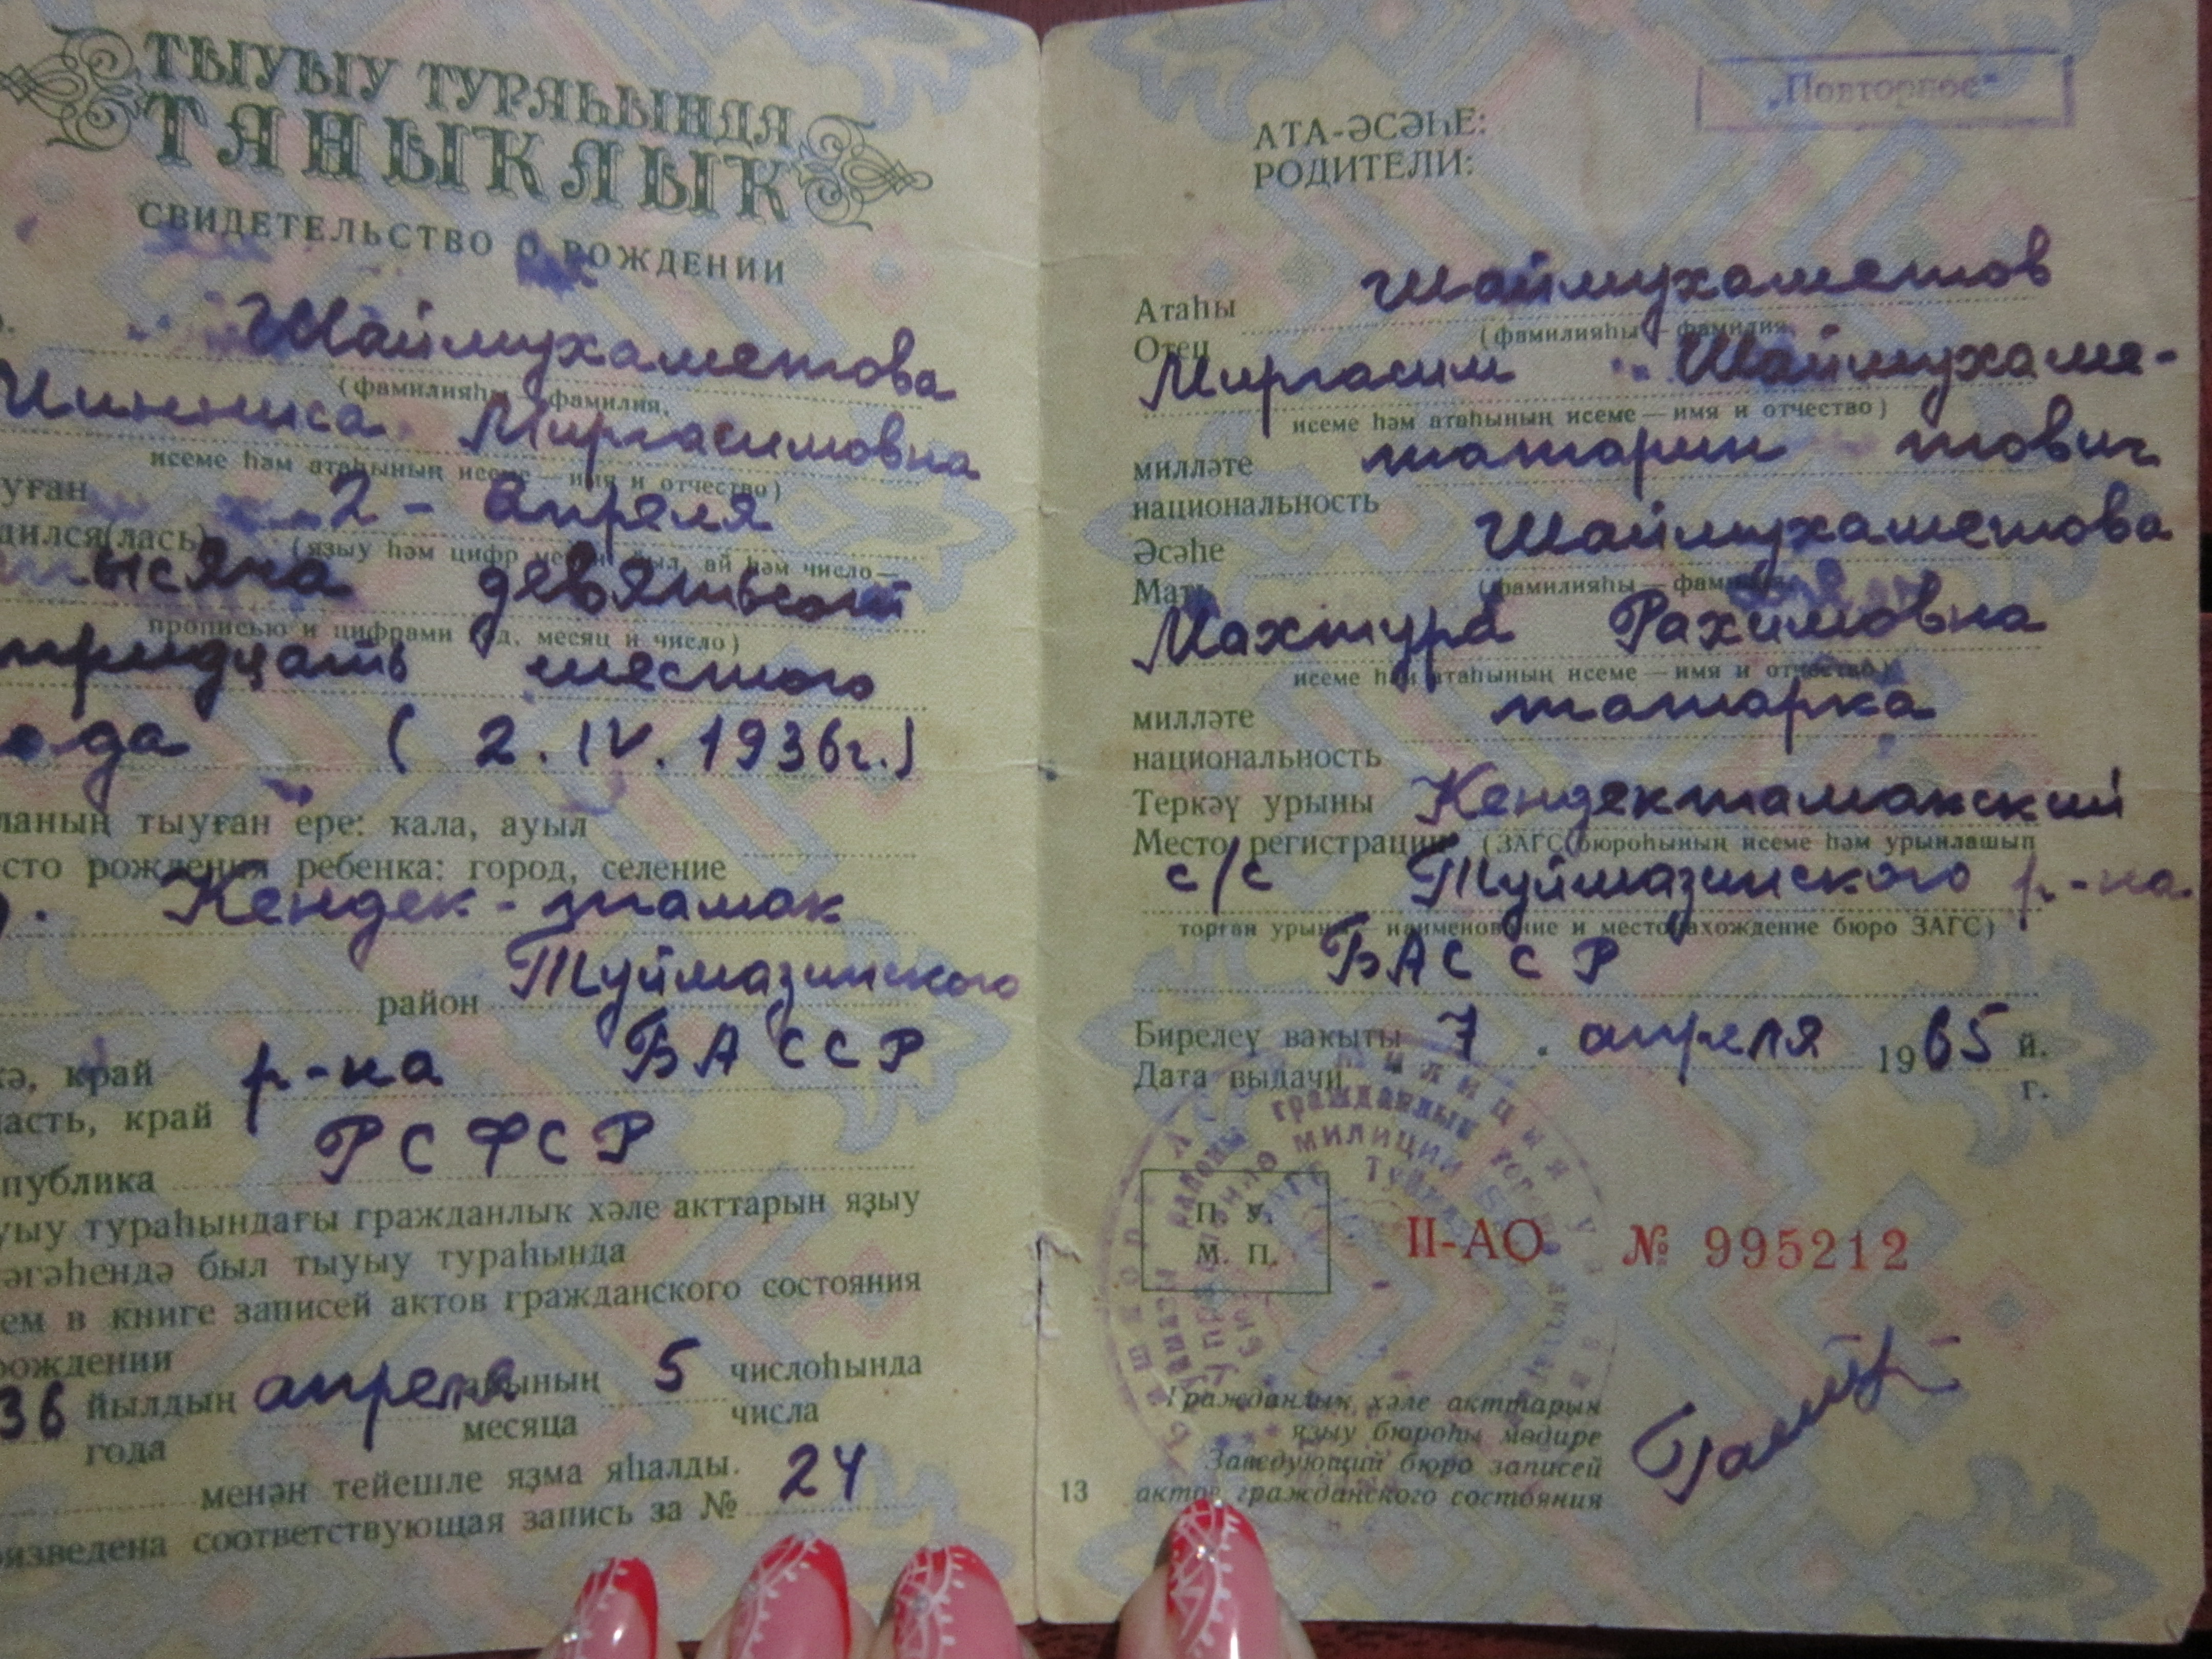 ТЫУЫУ ТУРАҺЫНДА
ТАНЫКЛЫК
СВИДЕТЕЛЬСТВО О РОЖДЕНИИ
Шаймухаметова
(фамилияһы — фамилия,
Минниса Миргасимовна
исеме һәм атаһының исеме — имя и отчество)
уған
дился(лась)
2 - апреля
(языу һәм цифр менән йыл, ай һәм число —
тысяча девятьсот
прописью и цифрами год, месяц и число)
тридцать шестого
ода (2.IV.1936г.)
ланың тыуған ере: кала, ауыл
сто рождения ребенка: город, селение
. Кендек-тамак
район Туймазинского
кә, край
асть, край
р-ка БАССР
публика РСФСР
уыу тураһындағы гражданлык хәле акттарын яҙыу
әгәһендә был тыуыу тураһында
ем в книге записей актов гражданского состояния
рождении
36 йылдың апреля айының 5 числоһында
года месяца числа
менән тейешле яҙма яһалды.
оизведена соответствующая запись за № 24
„Повторное"
АТА-ӘСӘҺЕ:
РОДИТЕЛИ:
Атаһы
Отец
Шаймухаметов
(фамилияһы — фамилия,
Миргасим Шаймухаме-
исеме һәм атаһының исеме — имя и отчество)
милләте
национальность
татарин тович
Әсәһе
Мать
Шаймухаметова
(фамилияһы — фамилия,
Махтура Рахимовна
исеме һәм атаһының исеме — имя и отчество)
милләте
национальность
татарка
Теркәү урыны
Место регистрации
Кендектамакский
(ЗАГС бюроһының исеме һәм урынлашып
с/с Туймазинского р-ка
торған урыны — наименование и местонахождение бюро ЗАГС)
БАССР
Бирелеү вакыты
Дата выдачи
7. апреля 1965 й.
г.
П. У.
М. П.
II-АО № 995212
Гражданлык хәле акттарын
языу бюроһы мөдире
Заведующий бюро записей
актов гражданского состояния
13